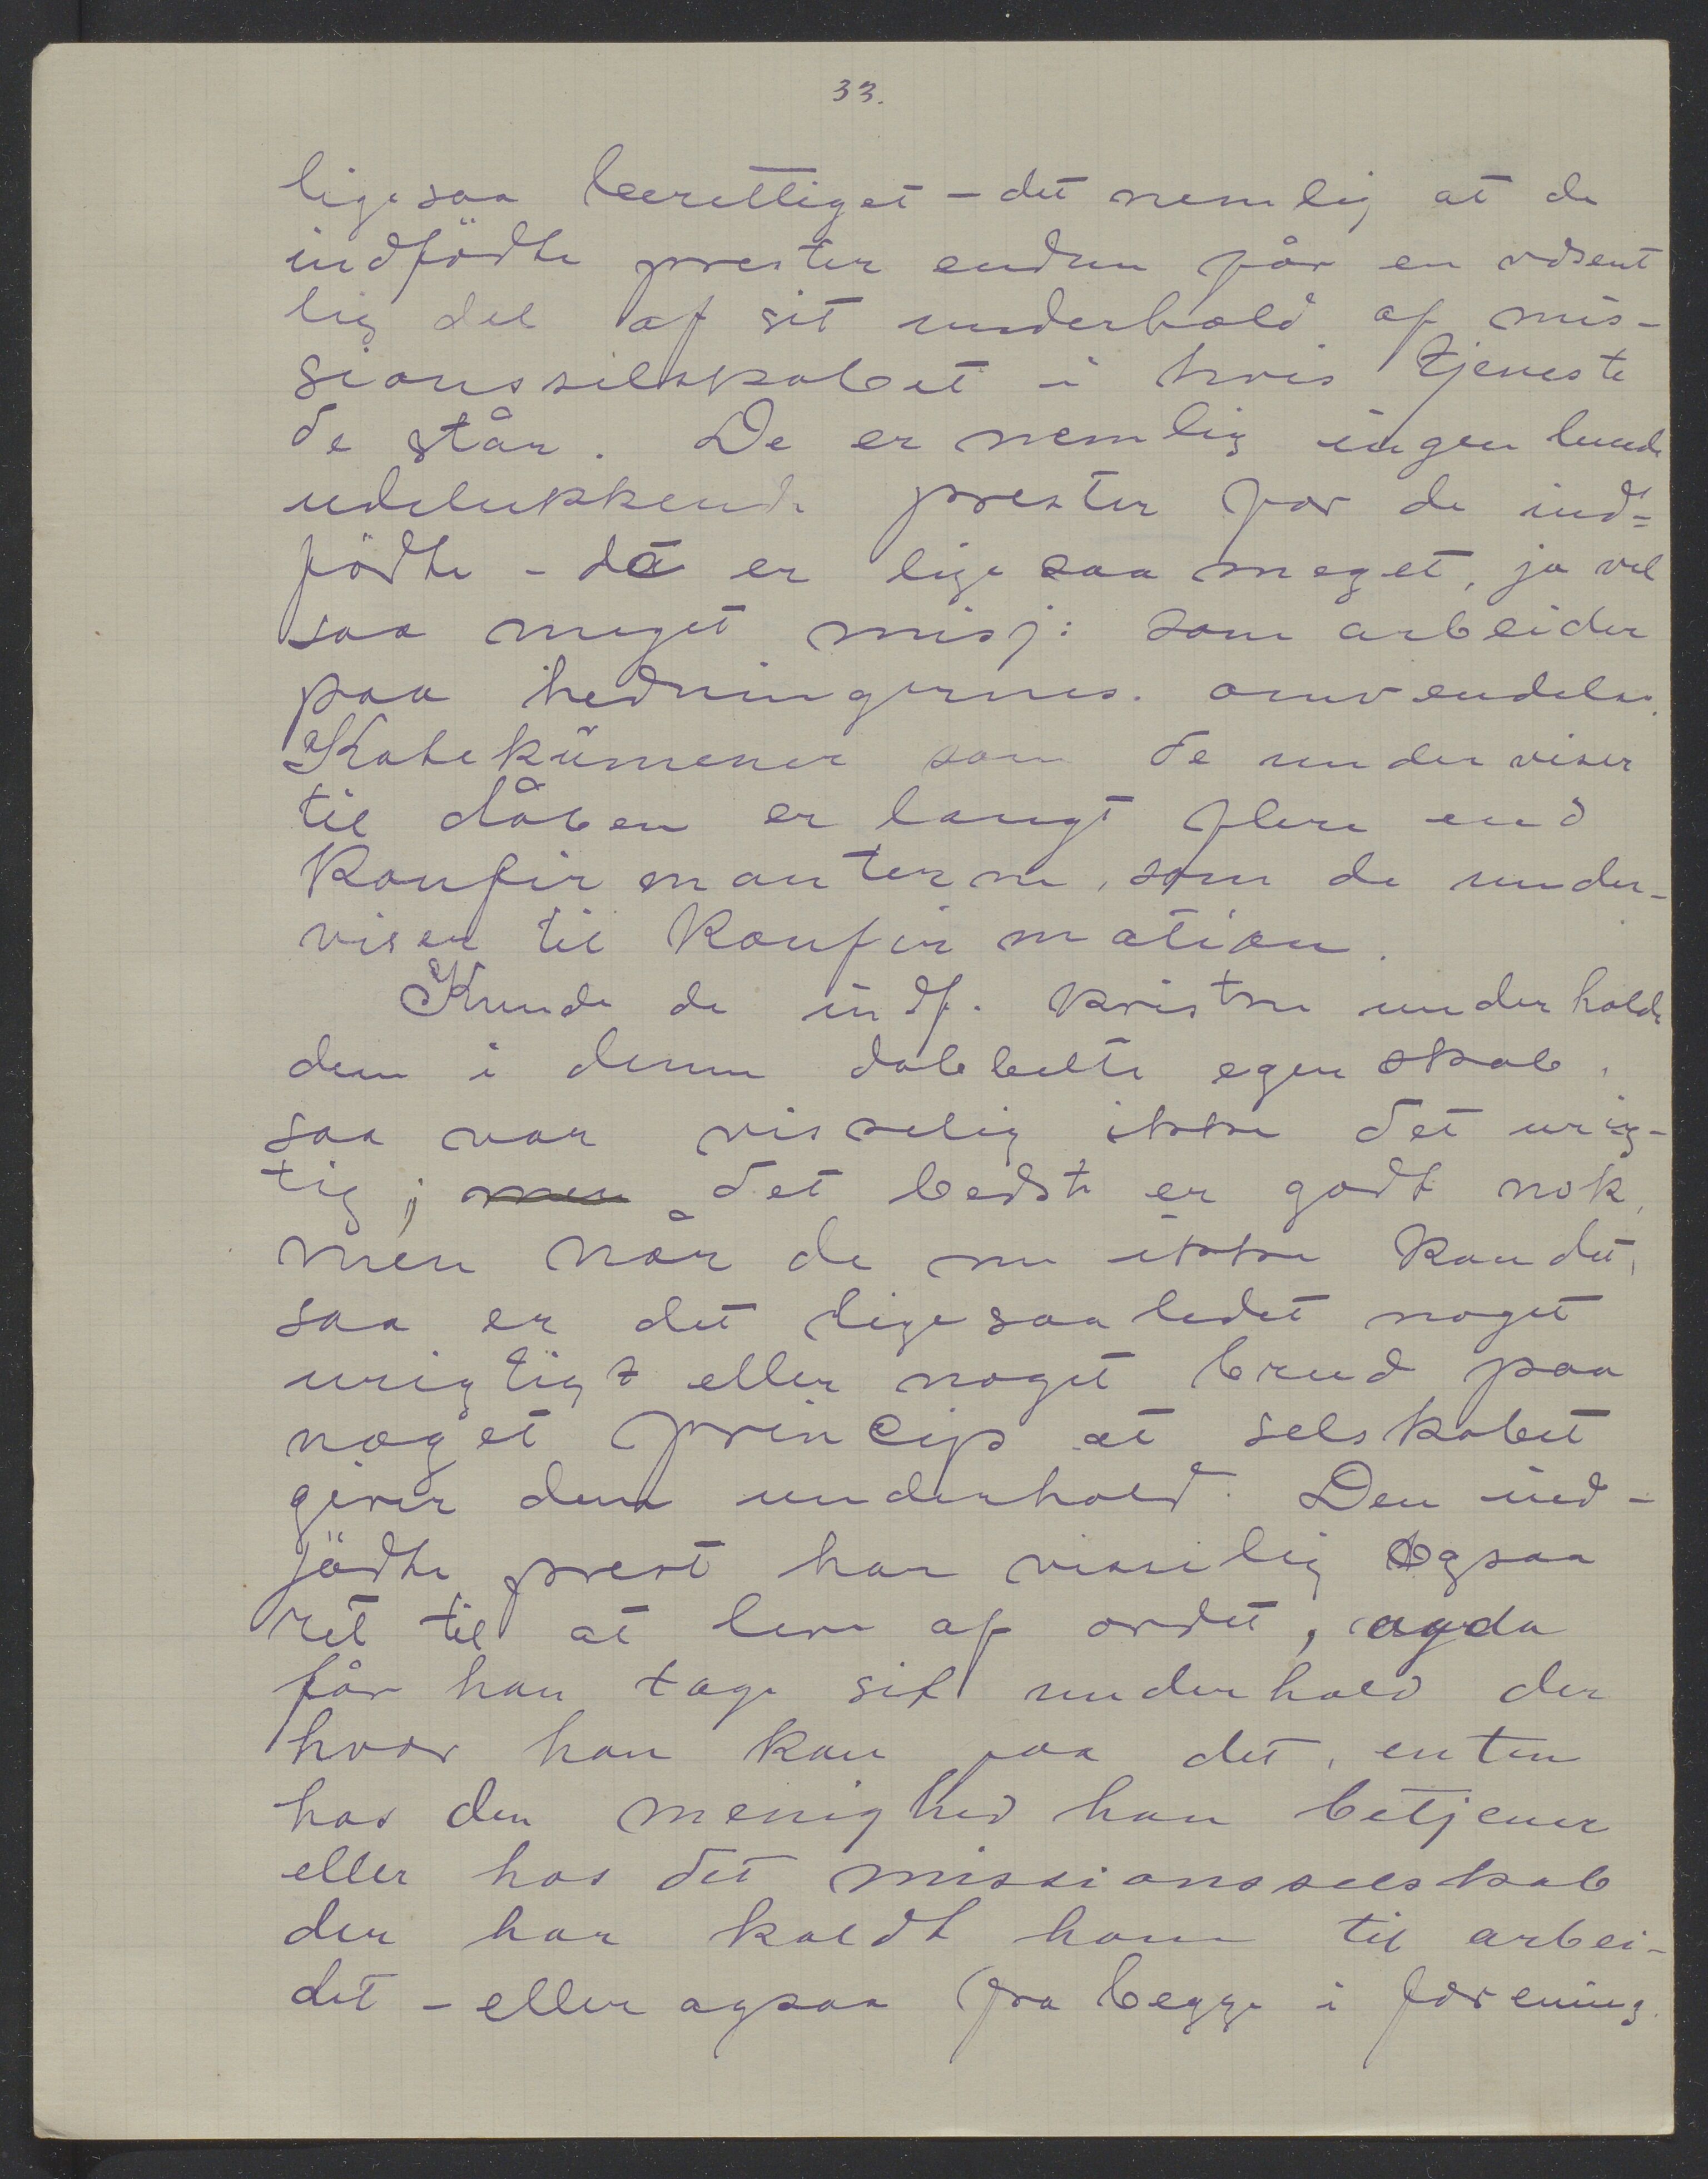 33.
ligesaa berettiget - det nemlig at de
indfödte prester endnu får en vdsent
lig del af sit underhold af mis-
sionsselskabet i hvis tjeneste
de står. De er nemlig ingenlunde
udelukkende prester for de ind=
födte - de er lige saa meget, ja vel
saa meget misj: som arbeider
paa hedningernes omvendelse.
Katekümener som de underviser
til dåben er langt flere end
Konfirmanterne, som de under-
viser til Konfirmation.
Kunde de indf. kristne underholde
dem i denne dobbelte egenskab,
saa var visselig ikke det urig-
tig; men det bedste er godt nok,
men når de nu ikke kan det,
saa er det ligesaalidet noget
urigtigt eller noget brud paa
noget princip at selskabet
giver dem underhold. Den ind-
födte prest har visselig ogsaa
ret til at leve af ordet, og da
får han tage sit underhold der
hvor han kan faa det, enten
hos den menighed han betjener
eller hos det missionsselskab
der har kaldt ham til arbei-
det - eller ogsaa fra begge i forening.